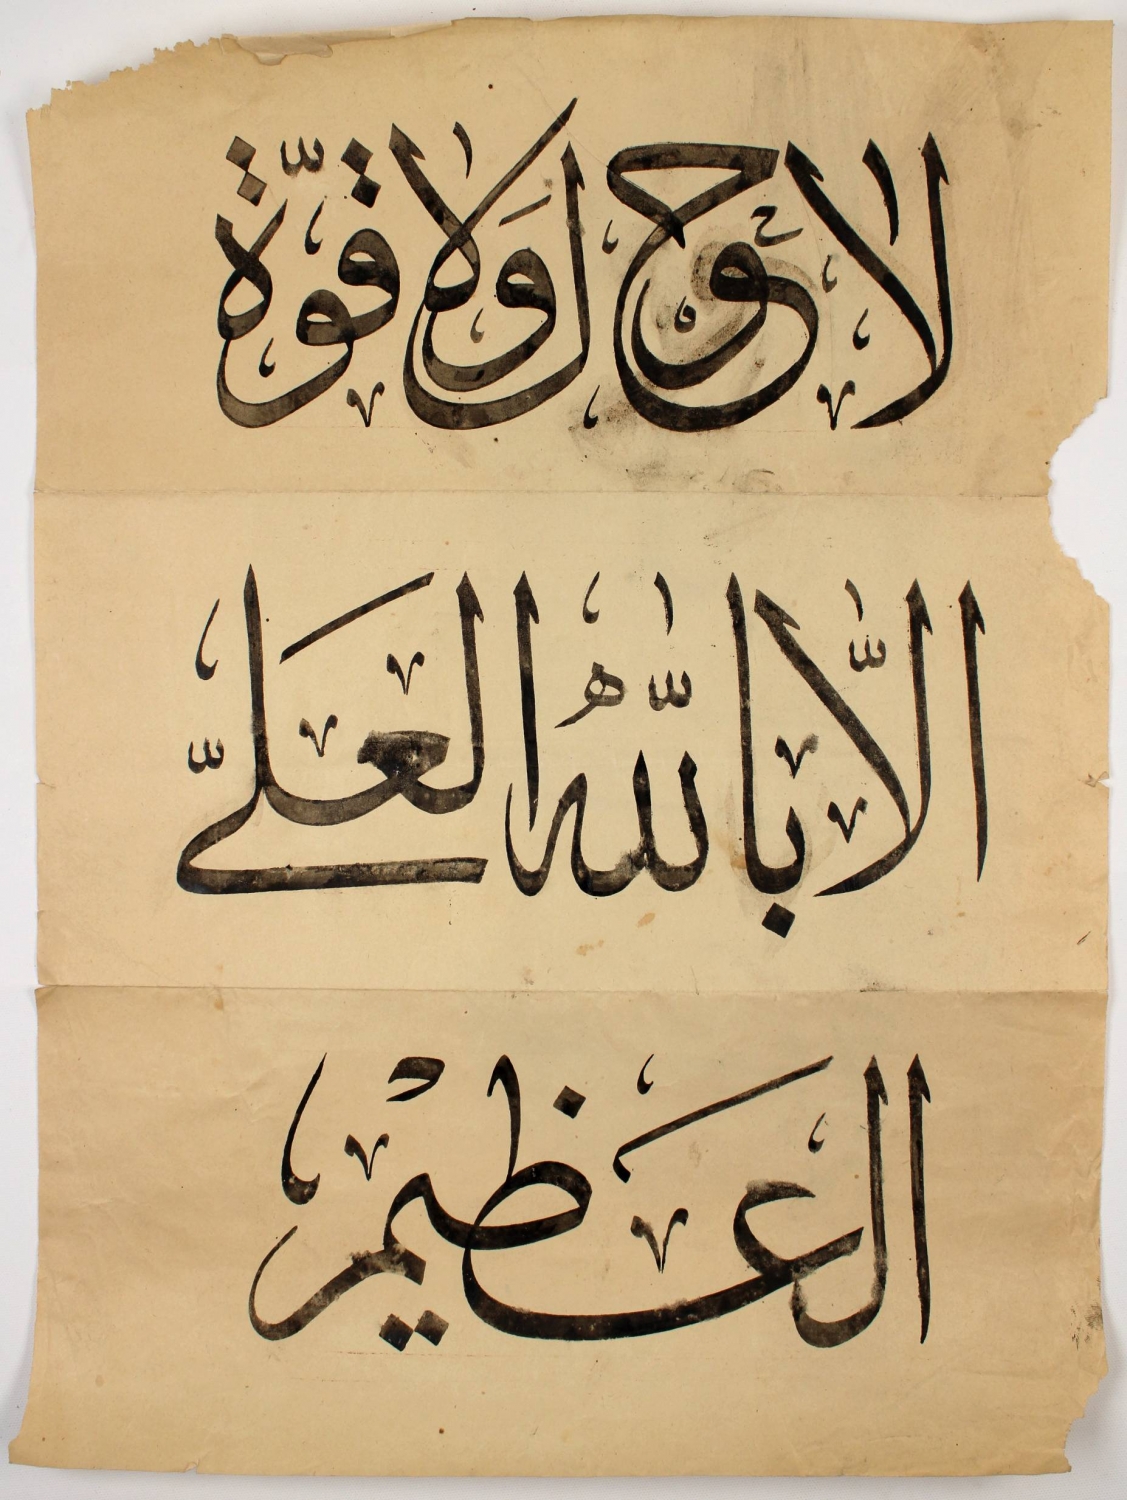 لا حول ولا قوّة
الّا بالله العليّ
العظيم